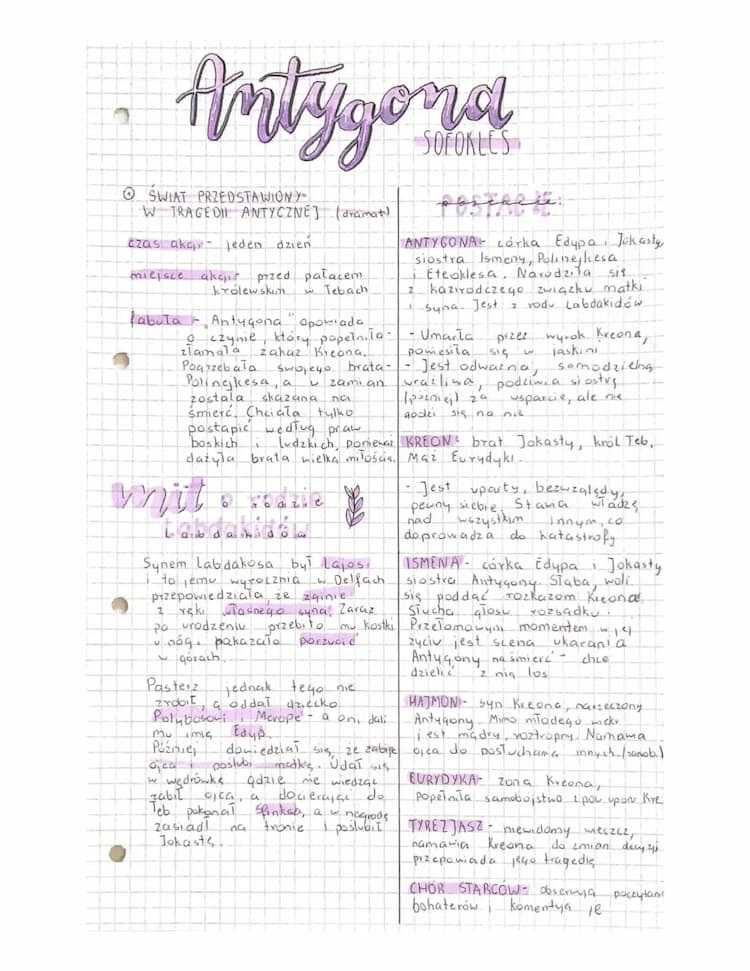 Antygona
SOFOKLES
① ŚWIAT PRZEDSTAWIONY
W TRAGEDII ANTYCZNEJ (dramat)
czas akcji - jeden dzień
miejsce akcji przed pałacem
królewskim w Tebach
fabuła - „Antygona" opowiada
o czynie, który popełniła -
złamała zakaz Kreona.
Pogrzebała swojego brata -
Polinejkesa, a w zamian
została skazana na
śmierć. Chciała tylko
postąpić według praw
boskich i ludzkich, ponieważ
dażyła brata wielką miłością.
mit o rodzie
Labdakidów
Synem Labdakosa był Lajos
i to jemu wyrocznia w Delfach
przepowiedziała, że zginie
z ręki własnego syna! Zaraz
po urodzeniu przebito mu kostki
u nóg i pokazało porzucić
w górach.
Pasterz jednak tego nie
zrobił, a oddał dziecko
Polybosowi i Merope - a oni dali
mu imię Edyp.
Później dowiedział się, że zabije
ojca i poślubi matkę. Udał się
w wędrówkę gdzie nie wiedząc
zabił ojca, a docierając do
Teb pokonał Sfinksa, a w nagrodę
zasiadł na tronie i poślubił
Jokastę.
postacie:
ANTYGONA - córka Edypa i Jokasty
siostra Ismeny, Polinejkesa
i Eteoklesa. Narodziła się
z kazirodczego związku matki
i syna. Jest z rodu Labdakidów
- Umarła przez wyrok Kreona,
powiesiła się w jaskini
- Jest odważna, samodzielna
wrażliwa, podziwia siostrę
(później) za wsparcie, ale nie
godzi się na nie
KREON: brat Jokasty, król Teb.
Mąż Eurydyki.
- Jest uparty, bezwzględy,
pewny siebie. Stawia władzę
nad wszystkim innym, co
doprowadza do katastrofy
ISMENA - córka Edypa i Jokasty
siostra Antygony. Słaba, woli
się poddać rozkazom Kreona
Słucha głosu rozsądku.
Przełomowym momentem w jej
życiu jest scena ukarania
Antygony na śmierć - chce
dzielić z nią los
HAJMON - syn Kreona, narzeczony
Antygony. Mimo młodego wieku
jest mądry, roztropny. Namawia
ojca do posłuchania innych. (samob.)
EURYDYKA - żona Kreona,
popełniła samobójstwo z pow. upon Kre
TYREZJASZ - niewidomy wieszcz,
namawia Kreona do zmian decyzji
przepowiada jego tragedię
CHÓR STARCÓW - obserwują poczytani
bohaterów i komentują je